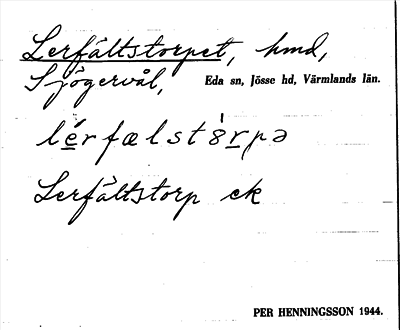 Lerfältstorpet, hmd,
Sjögervål, Eda sn, Jösse hd, Värmlands län.
lérfælstȣ̀rpə
Lerfältstorp ek
PER HENNINGSSON 1944.